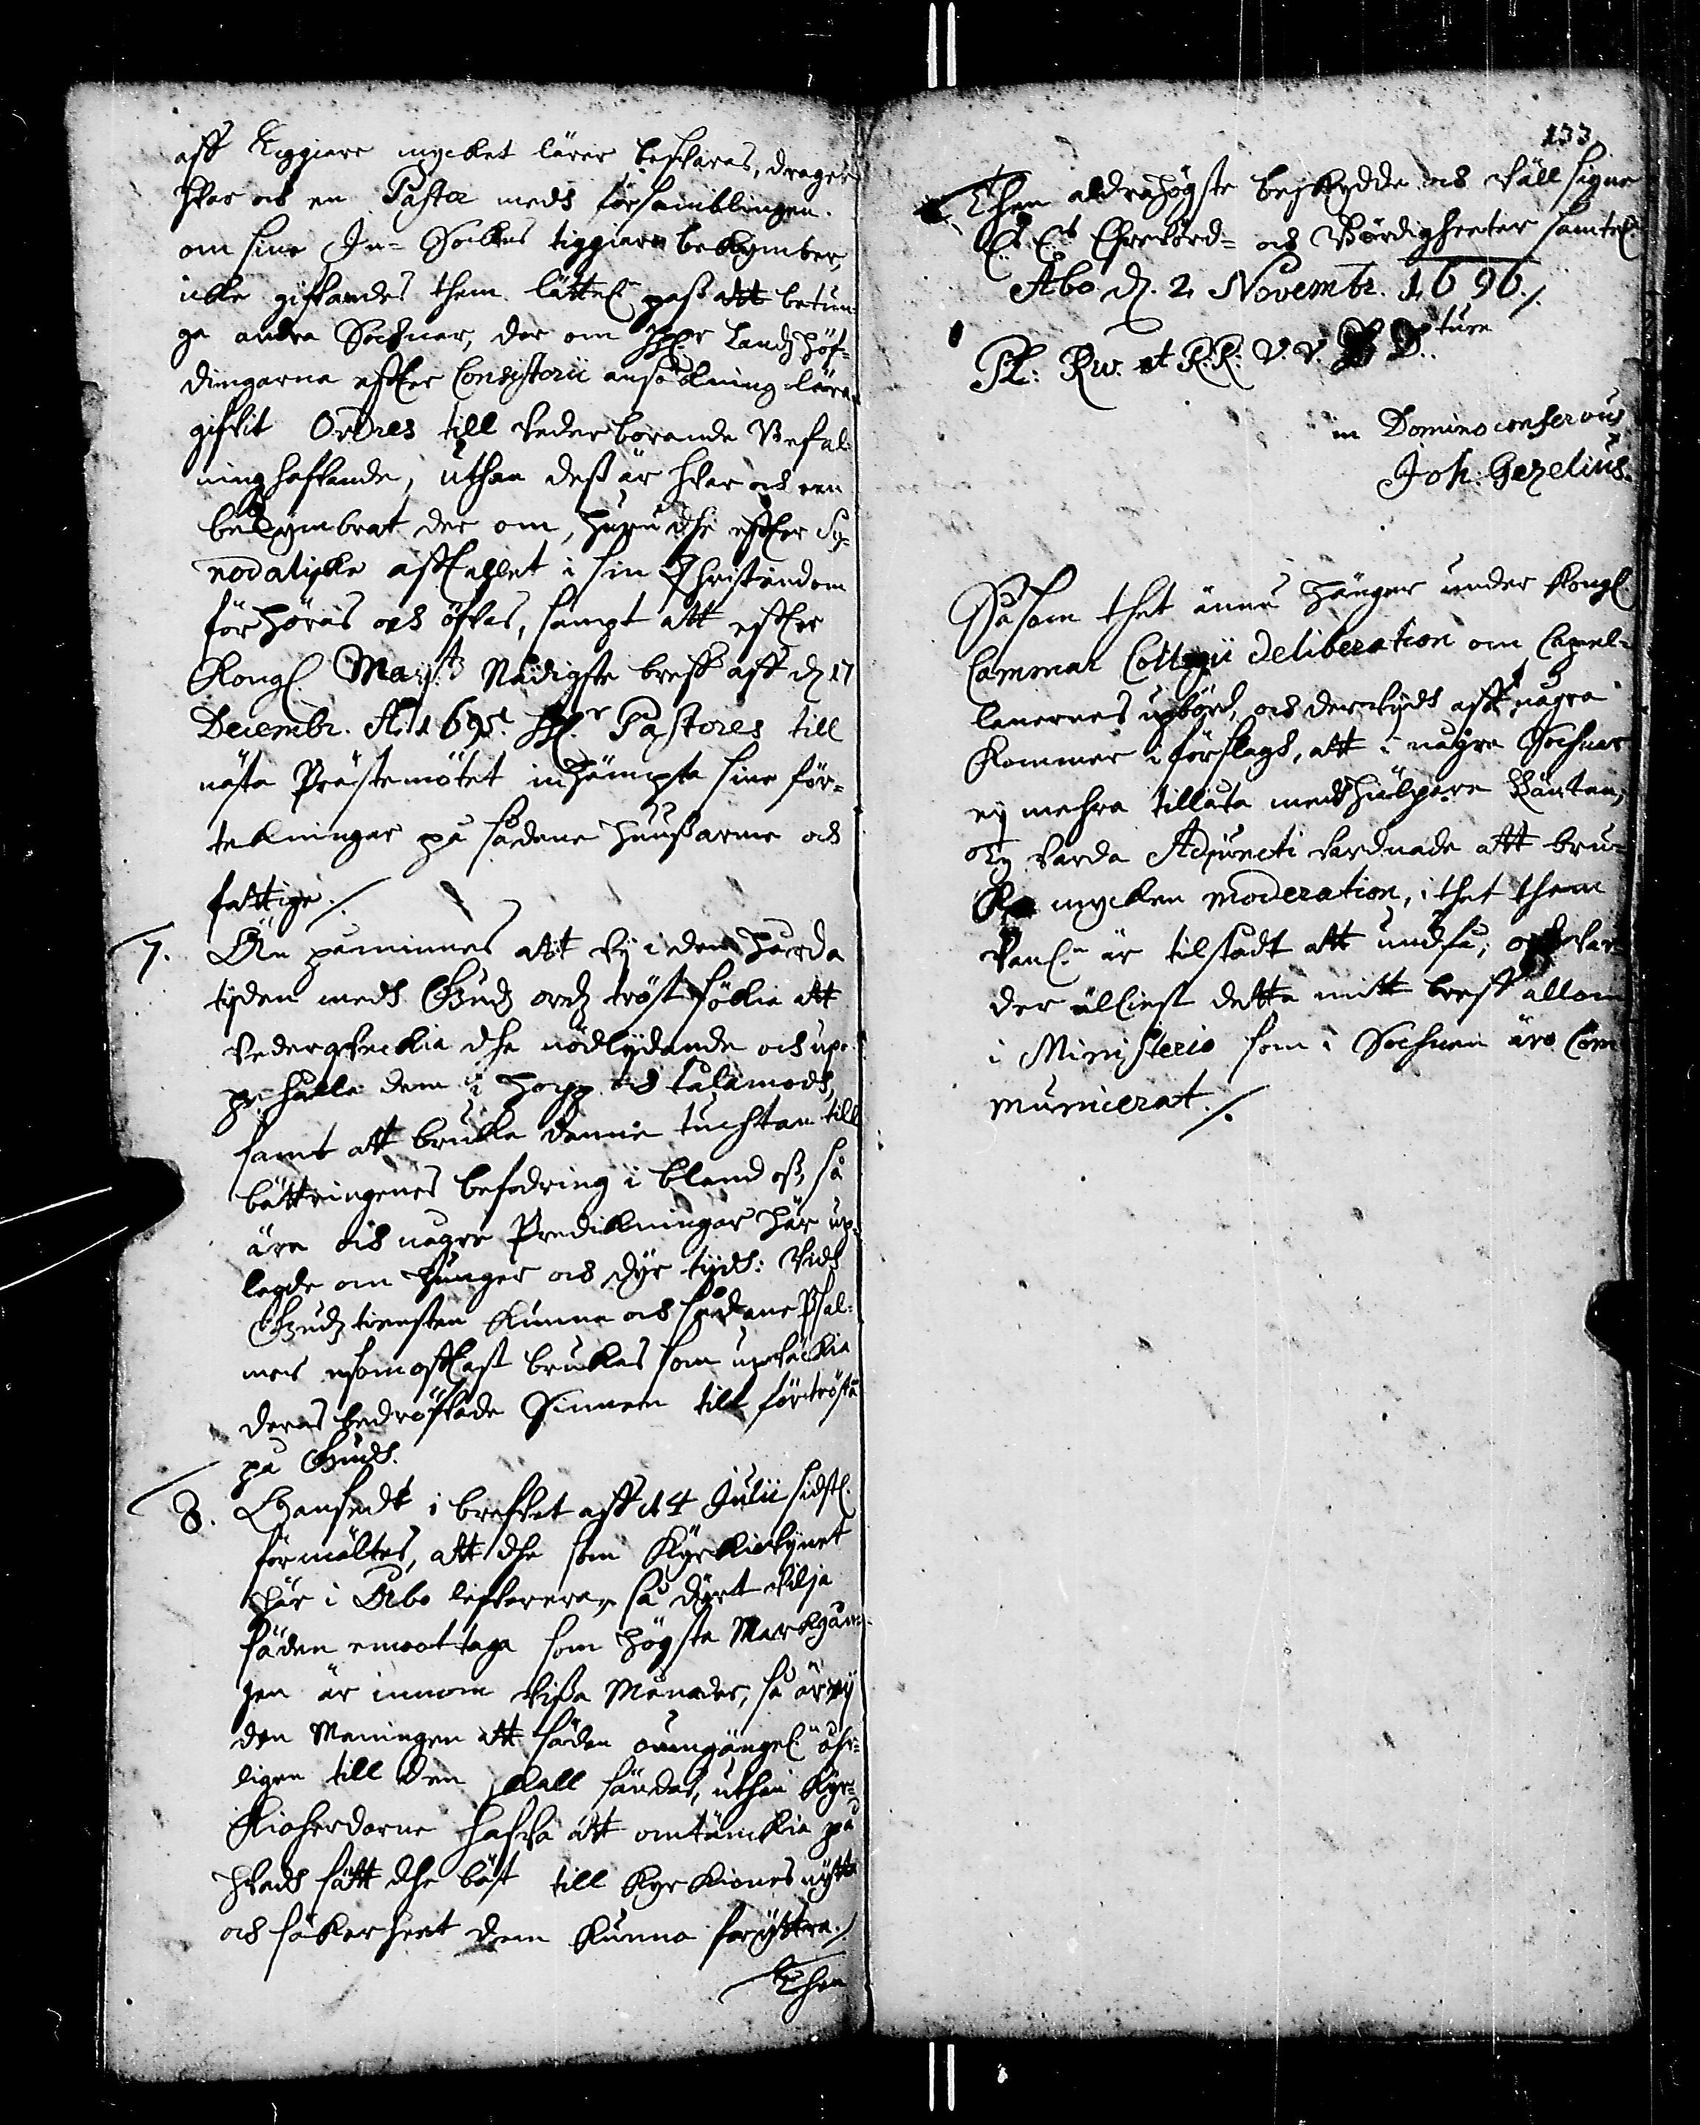 aff Tiggiare mycket lärer besväras, drager
hvar och en Pastor medh församblingen
om sine In- Sockns tiggiare bekymber,
icke gifvandes them lätteligen pass att betun-
ga andra Socknar, der om HH:r Landzhöf-
dingarna effter Consistorii ansökning lärer
gifvit Ordres till vederbörande Befal-
ninghafvande, uthan dess är hvar och een
bekymbrat der om, huru dhe effter Sy-
nodaliske affskedet i sin Christendom
förhöras och öfvas, sampt att effter
Kongl. May:tz Nådigste breff aff d. 17
Decembr. A. 1695 HH:r Pastores till
nästa Prästemötet inhämpta sine för-
tekningar på sådane huussarme och
fattige ./.
7. Än påminnes att vy i den hårda
tyden medh Gudz ordz tröst sökia att
vederqveckia dhe nödlydande och up-
pehålla dem i hopp och tålamodh,
samt att bruka denne tuchtan till
bättringenes befodring i bland oss, så
äre och någre Predikningar här up-
legde om hunger och dyr tijdh: Vidh
Gudztiensten kunna och sådane Psal-
mer esomofftast brukas som upväckia
deras bedröfvade Sinnen till förtröstan
på Gudh.
8. Ehansedt i brefvet aff d 14 Julii sidstl.
förmältes, att dhe som Kyrkiovynet
här i Åbo leffverera, så dyrt vilja
säden emoottaga som högsta Markgån-
gen är innom vissa Månader, så är ey
den Meningen att säden oumgängel. åhr-
ligen till dem skall sändas, uthan Kyr-
kioherdarne hafva att omtänckia på
hvadh sätt dhe bäst till Kyrkiones nytta
och säkerheet dem kunna föryttra ./.
Then
133
Then aldrahögste beskydde och väll signe
E: E: Ehrevörd- och Vördigheeter samtel.
Åbo d. 2 Novembr. 1696 ./.
Pl: Rev. et R.R: V. V. D. ture
in Domino conservus
Joh: Gezelius.
Såsom thet ännu hänger under Kongl.
Cammar Collegii deliberation om Capel-
lanernes upbörd, och derhydh aff någre
kommer i förslagh, att i några Sochnar
ey mehra tillåta medhhielpare Räntan,
Ty varda Adjuncti vardnade att bru-
ka mycken moderation, i thet them
vanl. är tilstadt att undfå, och var-
der ällliest detta mitt breff allom
i Ministerio som i Sochnen äro Com
municerat ./.